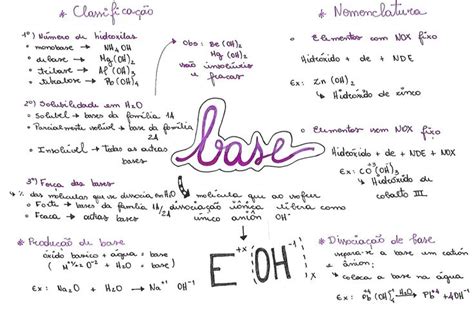 * Classificação
1º) Número de hidroxilas
• monobase → NH4OH
• dibase → Mg(OH)2
• tribase → Al(OH)3
• tetrabase → Pb(OH)4
Obs: Be(OH)2
Mg(OH)2
são insolúveis
e fracas
2º) Solubilidade em H2O
• Solúvel → bases da família 1A
• Parcialmente solúvel → base da família
2A
• Insolúvel → todas as outras
bases
3º) Força das bases
↳ % das moléculas que se dissocia em H2O
• Forte → bases da família 1A/2A
• Fraca → outras bases
* Produção de base
óxido básico + água = base
Ex: Na2O + H2O → Na+¹ OH-¹
base
molécula que ao sofrer
dissociação iônica libera como
único ânion OH-
E+x (OH-¹)x
* Nomenclatura
o Elementos com NOX fixo
Hidróxido + de + NDE
Ex: Zn(OH)2
↳ Hidróxido de zinco
o Elementos sem NOX fixo
Hidróxido + de + NDE + NOX
Ex: CO+3(OH)3
↳ Hidróxido de
cobalto III.
* Dissociação de base
separa-se a base um cátion
e ânion;
↳ coloca a base na água
Ex: Pb(OH)4 H2O→ Pb+4 + 4OH-¹